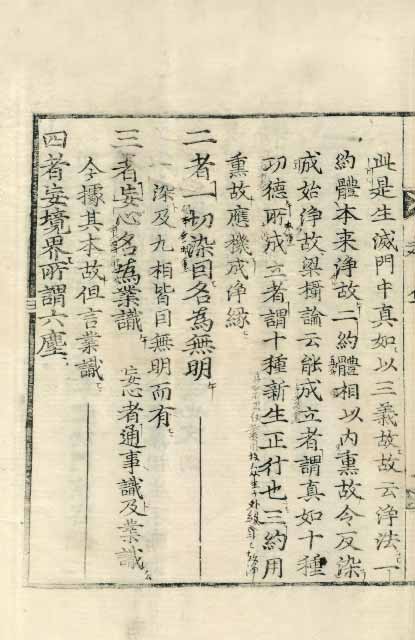 此是生滅門中真如以三義故故云淨法一
約體本来淨故二約體相以内熏故令反染
成始淨故梁攝論云能成立者謂真如十種
功德所成立者謂十種新生正行也三約用
熏故應機成淨緣
二者一切染因名為無明
染及九相皆因無明而有
三者妄心名為業識 妄心者通事識及業識
今據其本故但言業識
四者妄境界所謂六塵